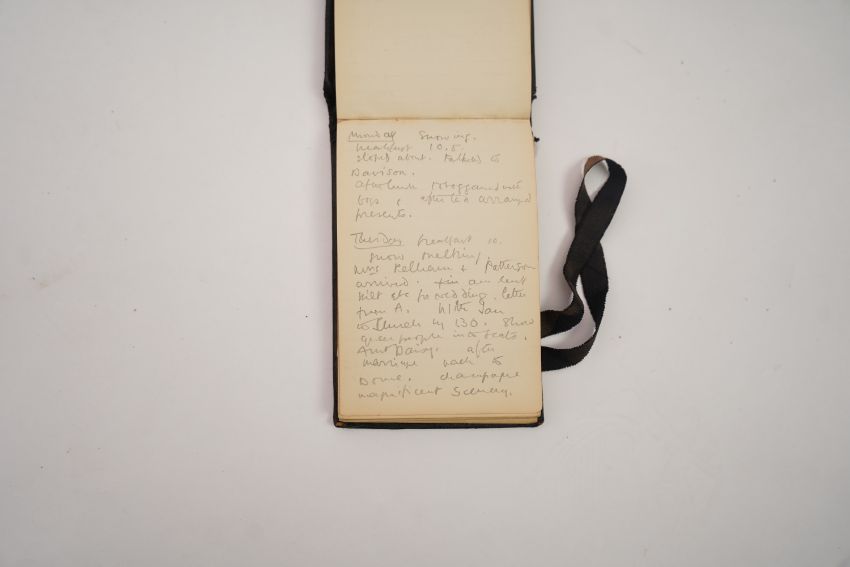 Monday Snowing.
breakfast 10.5.
about. talked to
Davison.
After lunch tobogganed with
boys & after tea arranged
presents.
Tuesday breakfast 10.
Snow melting.
Mrs Kelham & Patterson
arrived.
kilt etc for wedding. letter
from A. With Ian
to Church by 1 30. Show
people into seats.
Aunt Daisy. after
marriage back to
champagne
magnificent Scenery.